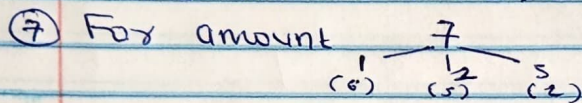 ⑦ For amount 7
1 2 5
(6) (5) (2)